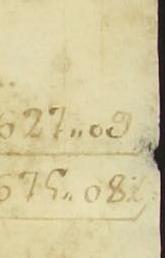 627,,09
675,,08½